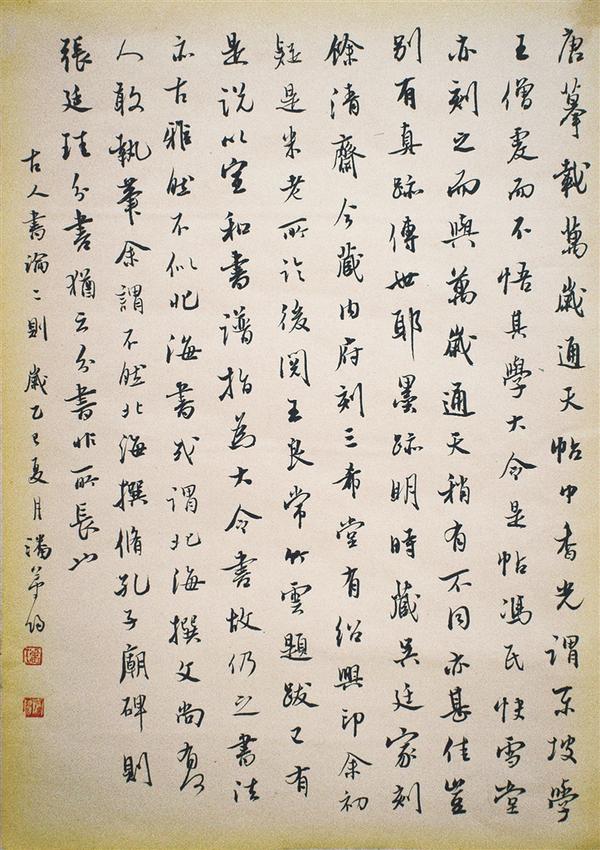 唐摹載萬歲通天帖中香光謂東坡學
王僧虔而不悟其學大令是帖馮氏快雪堂
亦刻之而與萬歲通天稍有不同亦甚佳豈
別有真跡傳世耶墨跡明時藏吳廷家刻
餘清齋今藏內府刻三希堂有紹興印余初
疑是米老所臨後閱王良常竹雲題跋已有
是說以宣和書譜指為大令書故仍之書法
亦古雅然不似北海書或謂北海撰文尚有
人敢執筆余謂不然北海撰脩孔子廟碑則
張廷珪分書猶云分書非所長也
古人書論二則 歲乙巳夏月潘